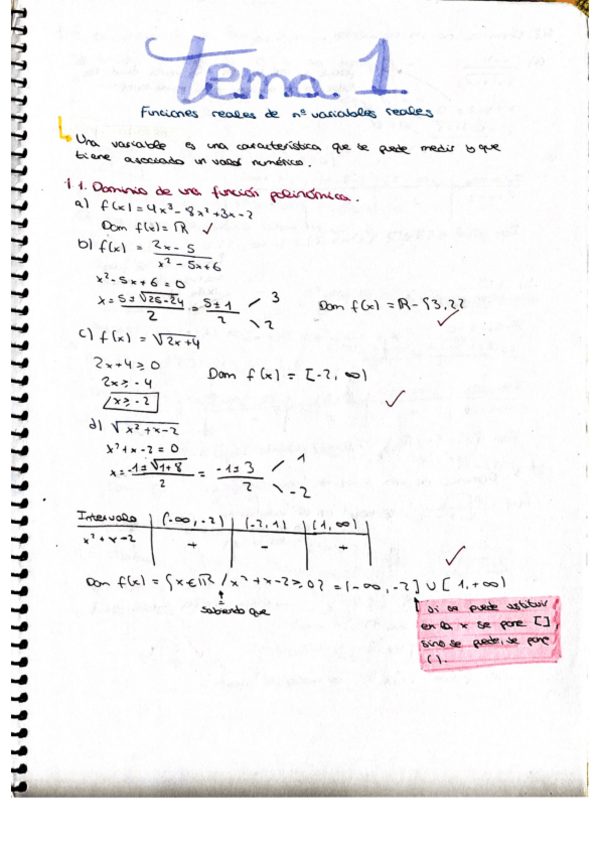 Tema 1
Funciones reales de nº variables reales
Una variable es una característica que se puede medir y que
tiene asociado un valor numérico.
1.1. Dominio de una función polinómica.
a) f(x) = 4x³ - 8x² + 3x - 2
Dom f(x) = ℝ ✓
b) f(x) = 2x - 5 / x² - 5x + 6
x² - 5x + 6 = 0
x = 5 ± √25 - 24 / 2 = 5 ± 1 / 2 3 2
Dom f(x) = ℝ - {3, 2} ✓
c) f(x) = √2x + 4
2x + 4 ≥ 0
2x ≥ - 4
x ≥ - 2
Dom f(x) = [-2, ∞) ✓
d) √x² + x - 2
x² + x - 2 = 0
x = -1 ± √1 + 8 / 2 = -1 ± 3 / 2 1 -2
Intervalo | (-∞, -2) | (-2, 1) | (1, ∞)
x² + x - 2 | + | - | +
✓
Dom f(x) = {x ∈ ℝ / x² + x - 2 ≥ 0} = (-∞, -2] ∪ [1, +∞)
sabiendo que
si se puede sustituir
en la x se pone [],
sino se puede, se pone
().